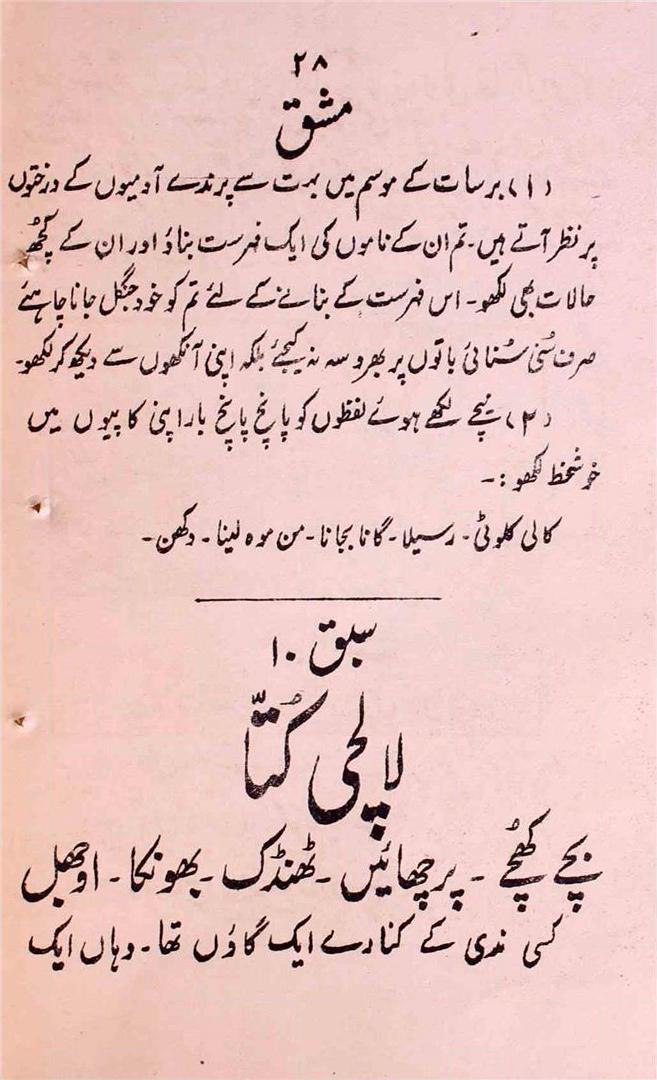 ۲۸
مشق
(۱) برسات کے موسم میں بہت سے پرندے آدمیوں کے درختوں
پر نظر آتے ہیں۔ تم ان کے ناموں کی ایک فہرست بناؤ اور ان کے کچھ
حالات بھی لکھو۔ اس فہرست کے بنانے کے لئے تم کو خود جنگل جانا چاہئے
صرف سُنی سُنائی باتوں پر بھروسہ نہ کیجئے بلکہ اپنی آنکھوں سے دیکھ کر لکھو۔
(۲) نیچے لکھے ہوئے لفظوں کو پانچ پانچ بار اپنی کاپیوں میں
خوشخط لکھو :۔
کالی کلوٹی۔ رسیلا۔ گانا بجانا۔ من موہ لینا۔ دکھن۔
سبق ۱۰
لالچی کُتّا
بچے کھُچے ۔ پرچھائیں ۔ ٹھنڈک ۔ بھونکا ۔ اوجھل
کسی ندی کے کنارے ایک گاؤں تھا۔ وہاں ایک